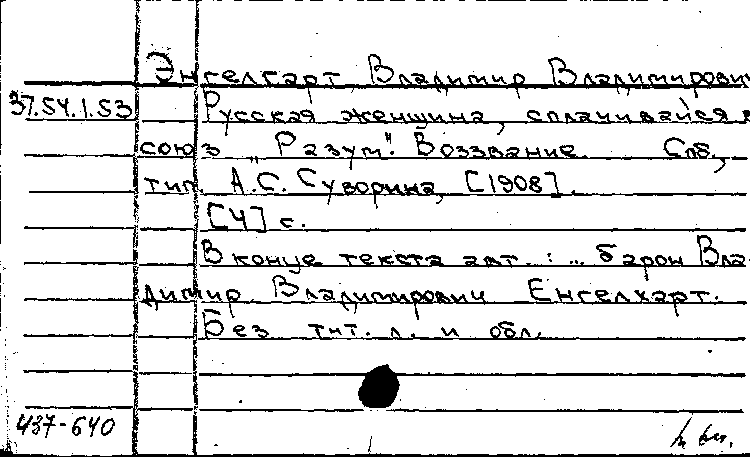 Энгелгарт, Владимир Владимирович
37.54.1.53 Русская женщина, сплачивайся в
союз „Разум". Воззвание. Спб.,
тип. А.С. Суворина, [1908].
[4] с.
В конце текста авт.: ... барон Вла-
димир Владимирович Енгелхарт.
Без тит. л. и обл.
437-640